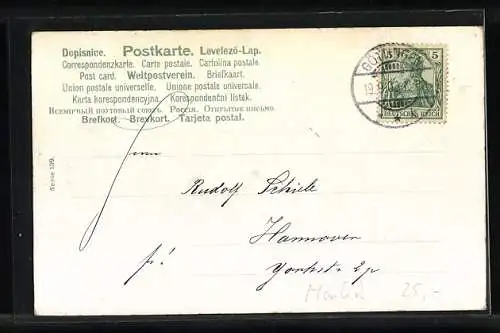 Dopisnice. Postkarte. Levelező-Lap.
Correspondenzkarte. Carte postale. Cartolina postale
Post card. Weltpostverein. Briefkaart.
Union postale universelle. Unione postale universale.
Karta korespondencyjna. Korespondenční lístek.
Всемірный почтовый союзъ. Россія. Открытое письмо.
Brefkort. Brevkort. Tarjeta postal.
5
DEUTSCHES REICH
Serie 189.
Herrn
Rudolf Schiele
Hannover
fr! Yorkstr.
25,-